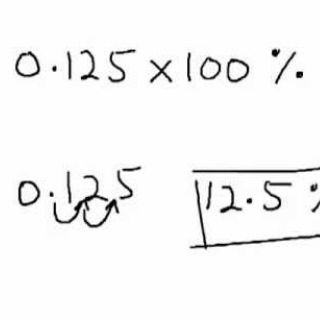 0.125 × 100 %
0.125
12.5 %